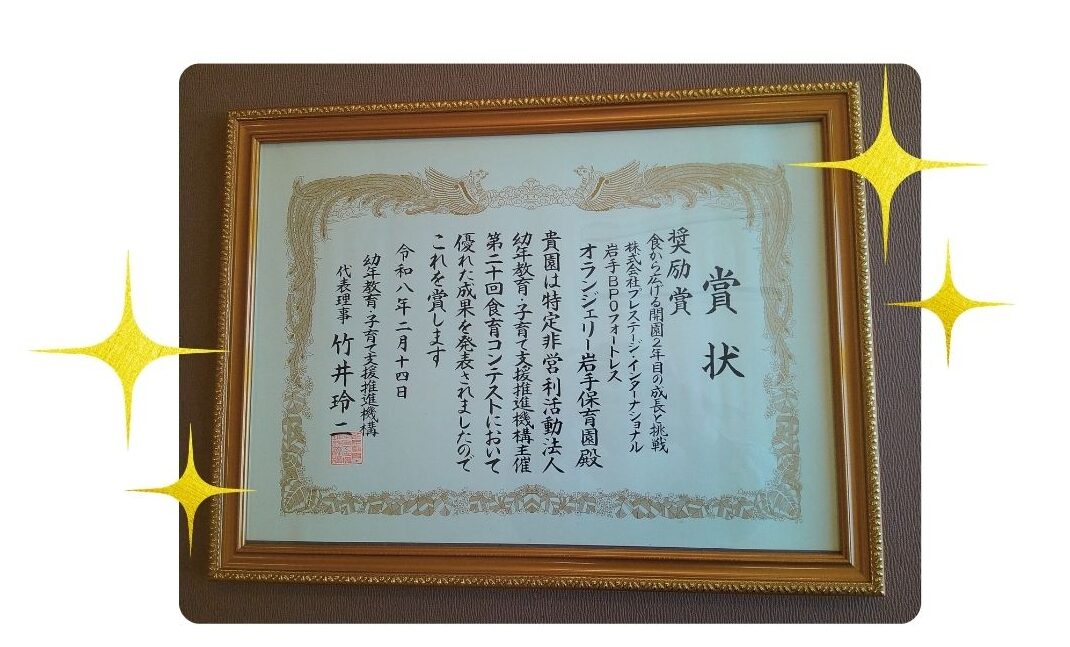 賞状
奨励賞
食から広げる開園2年目の成長と挑戦
株式会社プレステージ・インターナショナル
岩手BPOフォートレス
オランジェリー岩手保育園殿
貴園は特定非営利活動法人
幼年教育・子育て支援推進機構主催
第二十回食育コンテストにおいて
優れた成果を発表されましたので
これを賞します
令和八年二月十四日
幼年教育・子育て支援推進機構
代表理事 竹井玲二